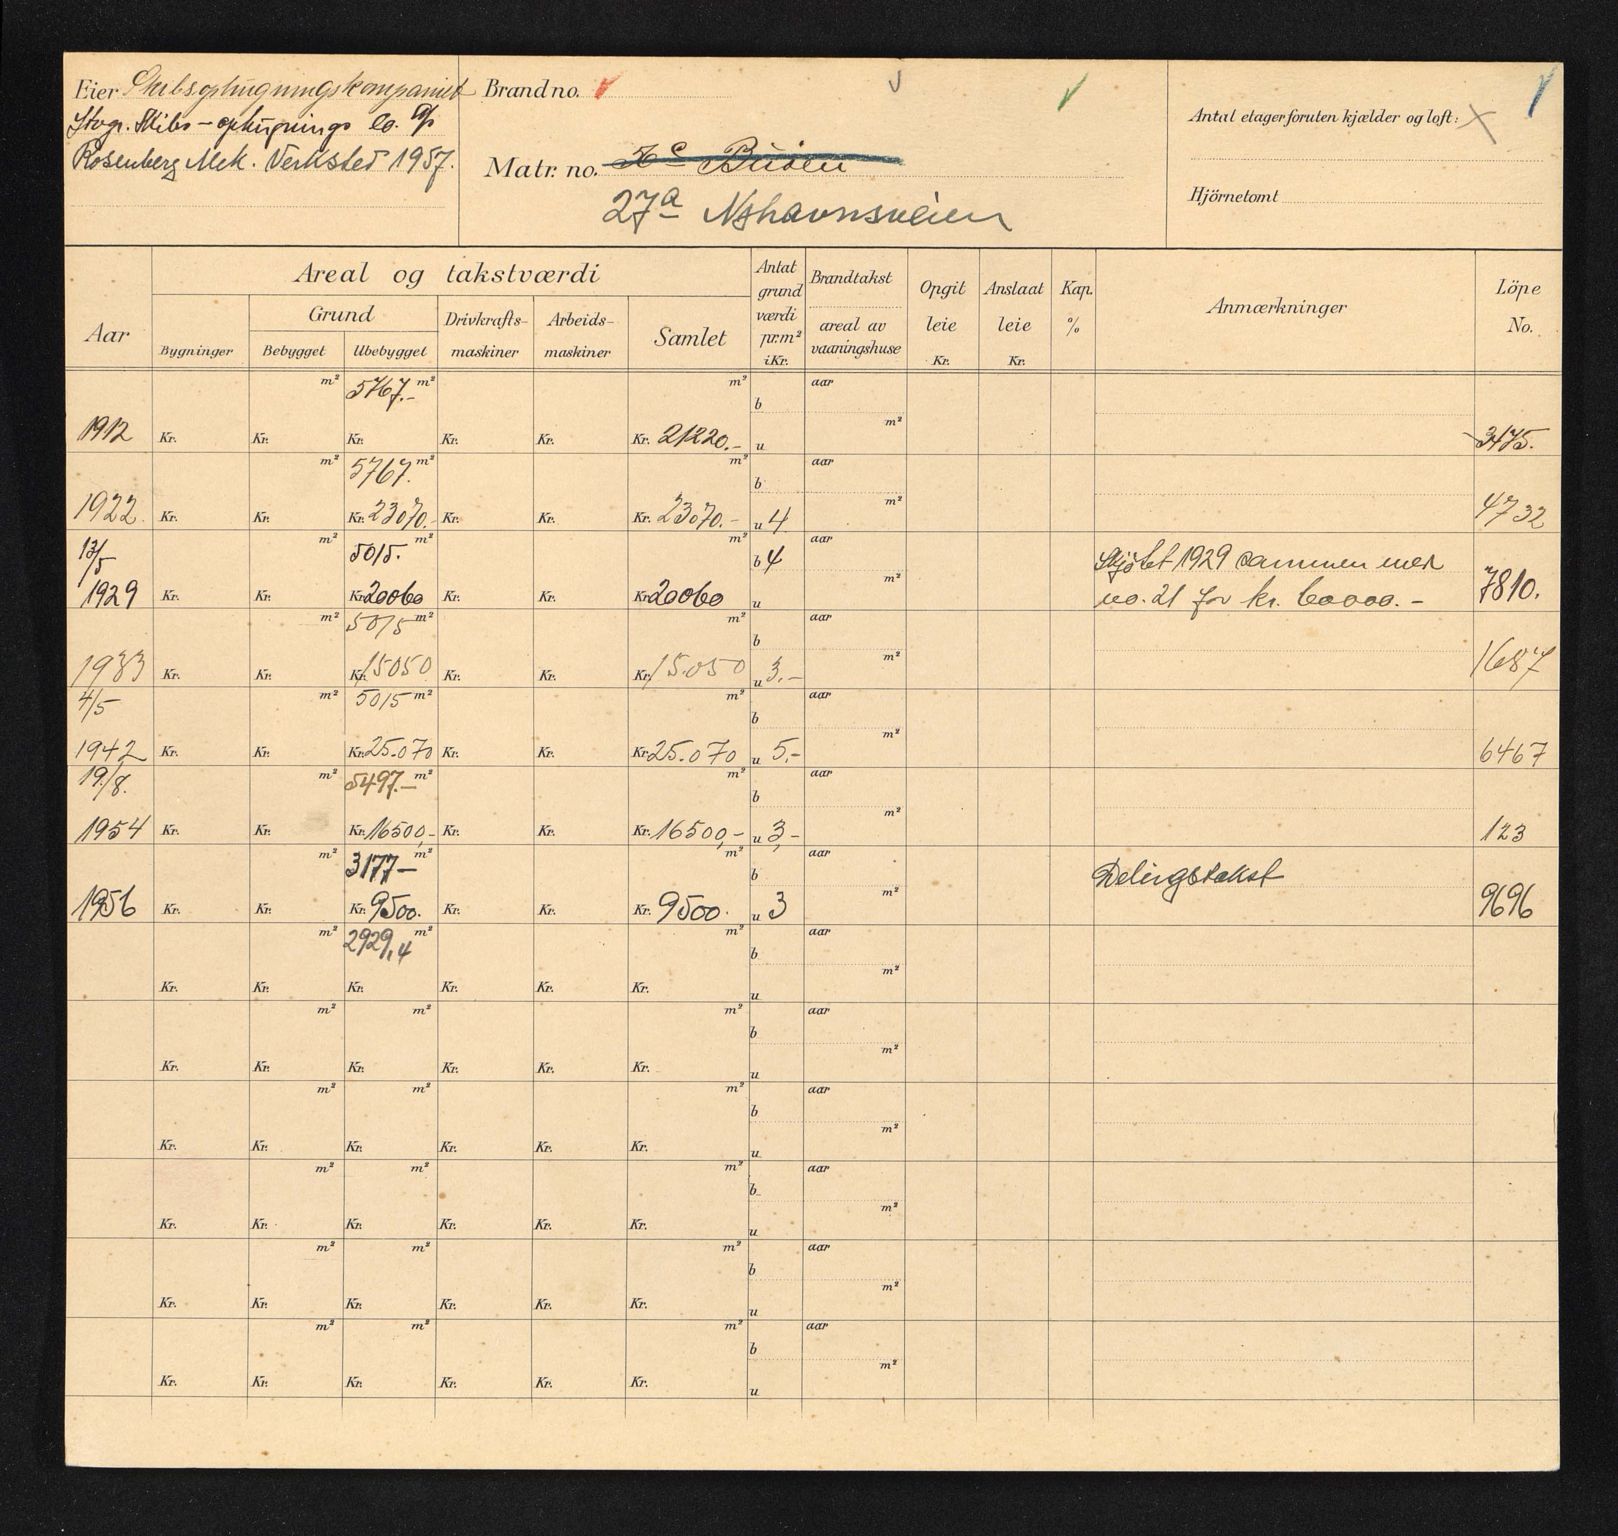 Eier Skibsophugningskompaniet
Stvgr. Skibs-ophugnings Co. A/S
Rosenberg Mek. Verksted 1957.
Brand no.
Matr. no. Buöen
27a Nyhavnsveien
Antal etager foruten kjælder og loft: X
Hjörnetomt
Aar
Areal og takstværdi
Bygninger
Grund
Bebygget Ubebygget
Drivkrafts-
maskiner
Arbeids-
maskiner
Samlet
Antat
grund
værdi
pr.m²
i Kr.
Brandtakst
areal av
vaaningshuse
Opgit
leie
Kr.
Anslaat
leie
Kr.
Kap.
%
Anmærkninger
Löpe
No.
m² 5767.- m² m² b aar
1912 Kr. Kr. Kr. Kr. Kr. Kr. 21220.- u m² 3475.
m² 5767. m² m² b aar
1922. Kr. Kr. Kr. 23070.- Kr. Kr. Kr. 23070.- u 4 m² 4732
13/5 m² 5015. m² m² b 4 aar Skjötet 1929 sammen med
1929 Kr. Kr. Kr. 20060 Kr. Kr. Kr. 20060 u m² no. 21 for kr. 60000.- 7810.
m² 5015 m² m² b aar
1933 Kr. Kr. Kr. 15050 Kr. Kr. Kr. 15.050 u 3.- m² 1687
4/5 m² 5015 m² m² b aar
1942 Kr. Kr. Kr. 25.070 Kr. Kr. Kr. 25.070 u 5.- m² 6467
19./8. m² 5497.- m² m² b aar
1954 Kr. Kr. Kr. 16500,- Kr. Kr. Kr. 16500,- u 3,- m² 123
m² 3177- m² m² b aar Delingstakst
1956 Kr. Kr. Kr. 9500. Kr. Kr. Kr. 9500. u 3 m² 9696
m² 2929,4 m² m² b aar
Kr. Kr. Kr. Kr. Kr. Kr. u m²
m² m² m² b aar
Kr. Kr. Kr. Kr. Kr. Kr. u m²
m² m² m² b aar
Kr. Kr. Kr. Kr. Kr. Kr. u m²
m² m² m² b aar
Kr. Kr. Kr. Kr. Kr. Kr. u m²
m² m² m² b aar
Kr. Kr. Kr. Kr. Kr. Kr. u m²
m² m² m² b aar
Kr. Kr. Kr. Kr. Kr. Kr. u m²